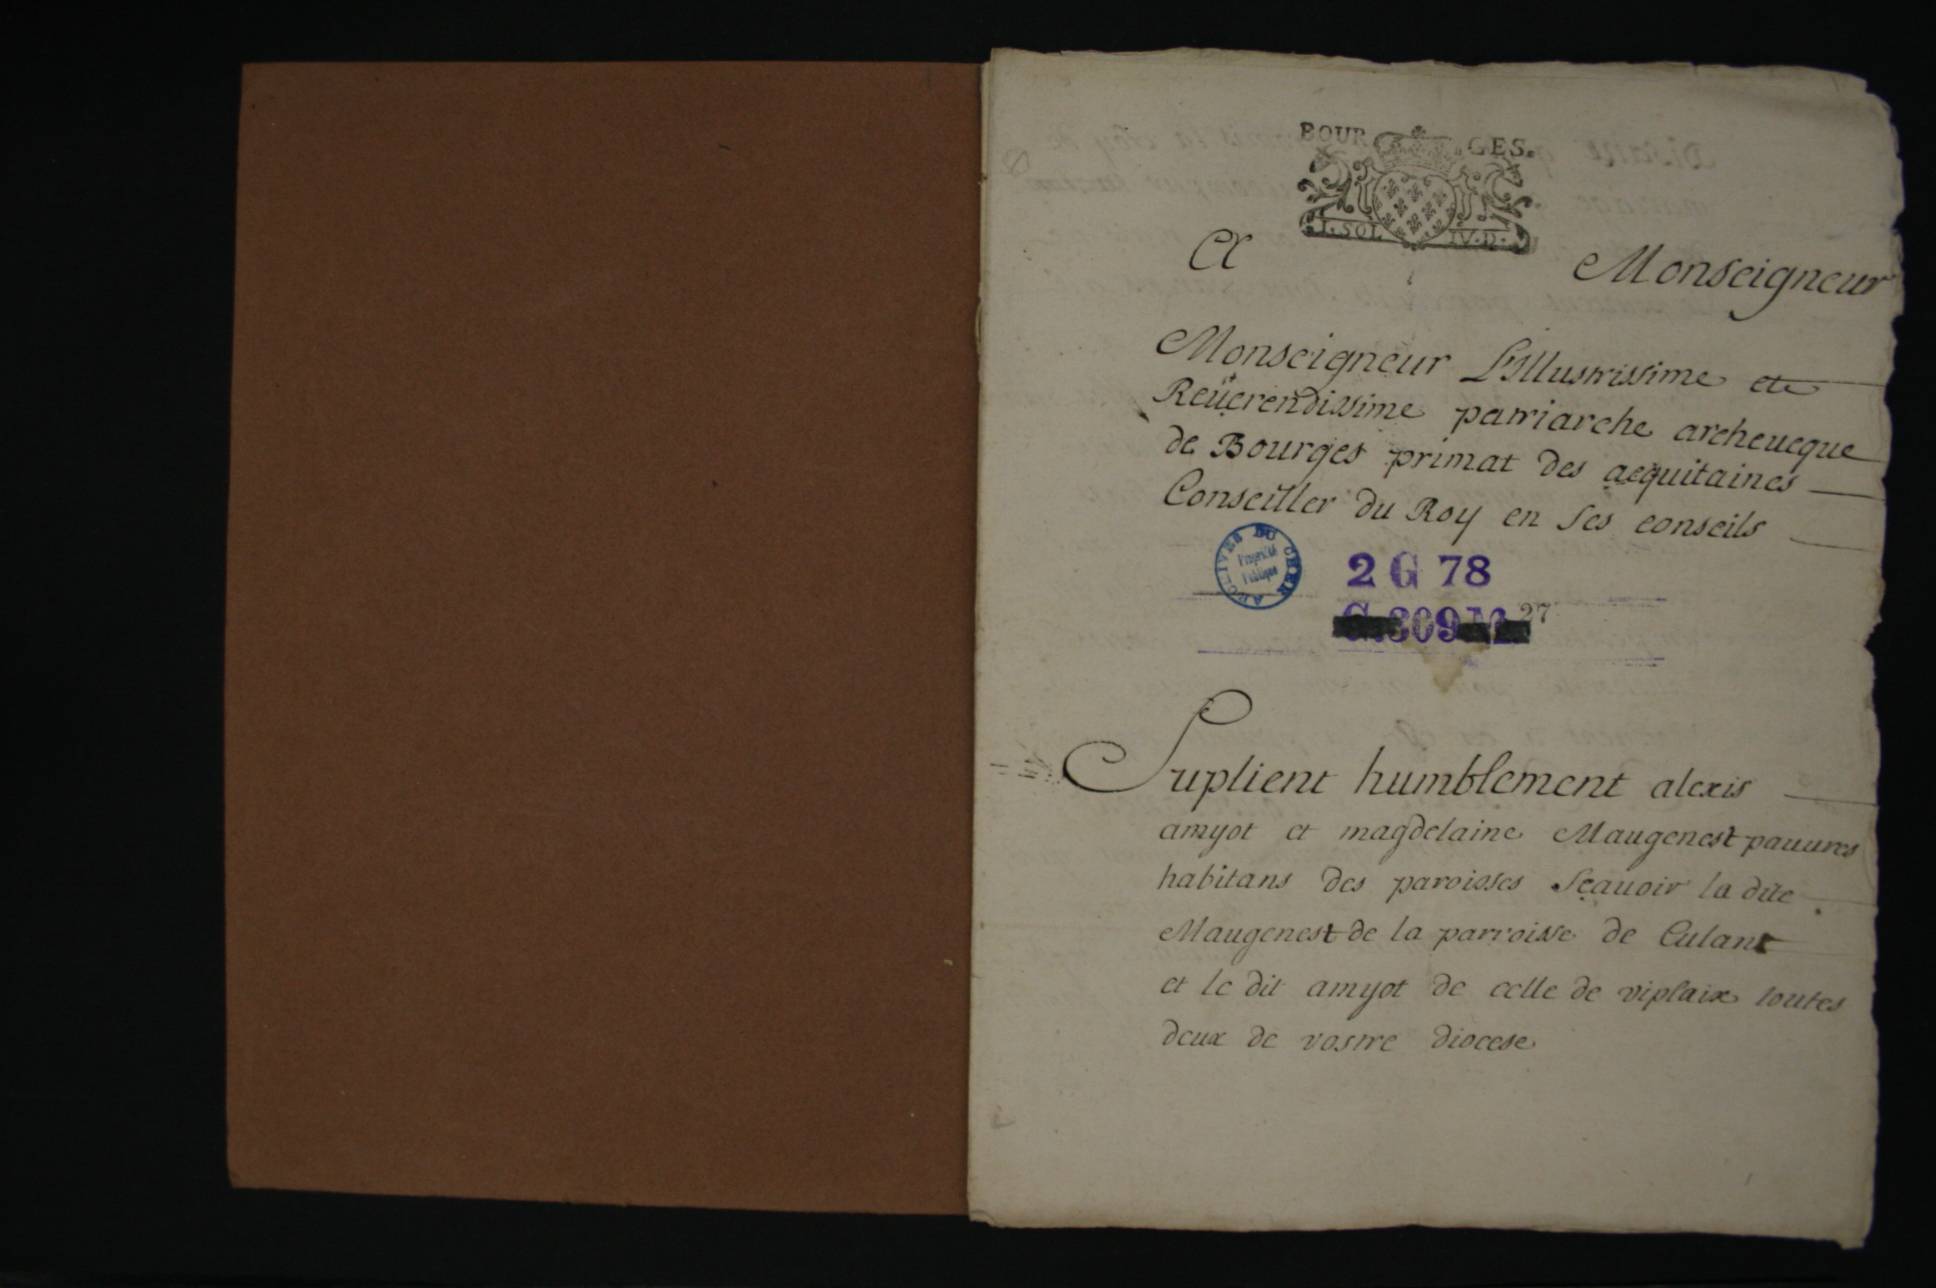 BOURGES.
I. SOL IV. D.
A Monseigneur
Monseigneur L'Illustrissime et
Reüerendissime patriarche archeueque
de Bourges primat des aequitaines
Conseiller du Roy en ses conseils
ARCHIVES DU CHER
Propriété
Publique
2 G 78
G.309 M. 27
Suplient humblement alexis
amyot et magdelaine Maugenest pauures
habitans des paroisses sçauoir la dite
Maugenest de la parroisse de Culant
et le dit amyot de celle de viplaix toutes
deux de vostre diocese